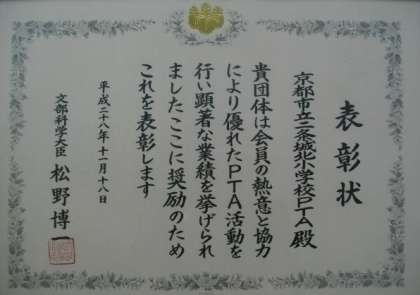 表彰状
京都市立二条城北小学校PTA殿
貴団体は会員の熱意と協力
により優れたPTA活動を
行い顕著な業績を挙げられ
ましたここに奨励のため
これを表彰します
平成二十八年十一月十八日
文部科学大臣 松野博一